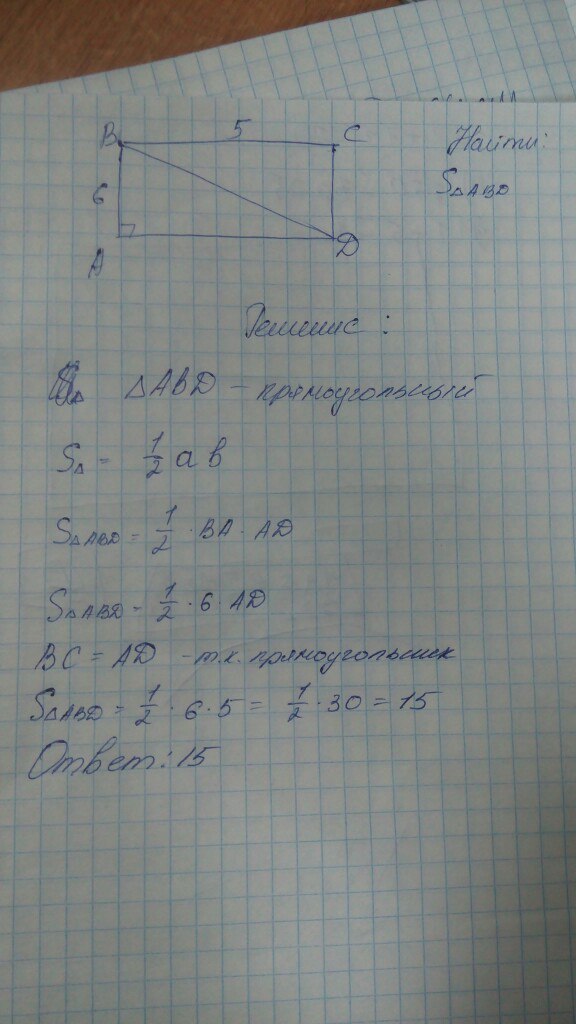 B 5 C
Найти:
S△ABD
6
A
D
Решение:
△ABD – прямоугольный
S△ = 1/2 a b
S△ABD = 1/2 · BA · AD
S△ABD = 1/2 · 6 · AD
BC = AD – т.к. прямоугольник
S△ABD = 1/2 · 6 · 5 = 1/2 · 30 = 15
Ответ: 15